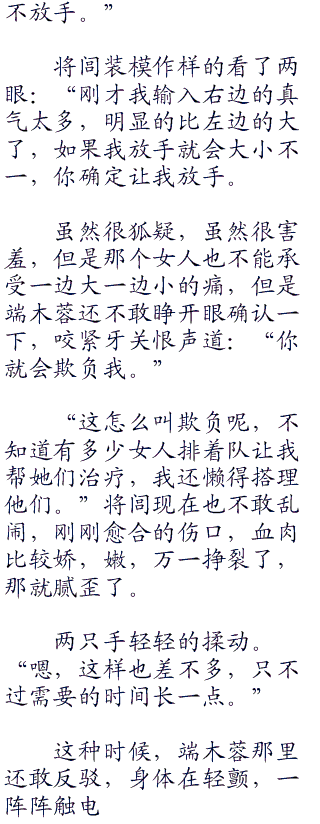 不放手。”
将闾装模作样的看了两
眼：“刚才我输入右边的真
气太多，明显的比左边的大
了，如果我放手就会大小不
一，你确定让我放手。
虽然很狐疑，虽然很害
羞，但是那个女人也不能承
受一边大一边小的痛，但是
端木蓉还不敢睁开眼确认一
下，咬紧牙关恨声道：“你
就会欺负我。”
“这怎么叫欺负呢，不
知道有多少女人排着队让我
帮她们治疗，我还懒得搭理
他们。”将闾现在也不敢乱
闹，刚刚愈合的伤口，血肉
比较娇，嫩，万一挣裂了，
那就腻歪了。
两只手轻轻的揉动。
“嗯，这样也差不多，只不
过需要的时间长一点。”
这种时候，端木蓉那里
还敢反驳，身体在轻颤，一
阵阵触电